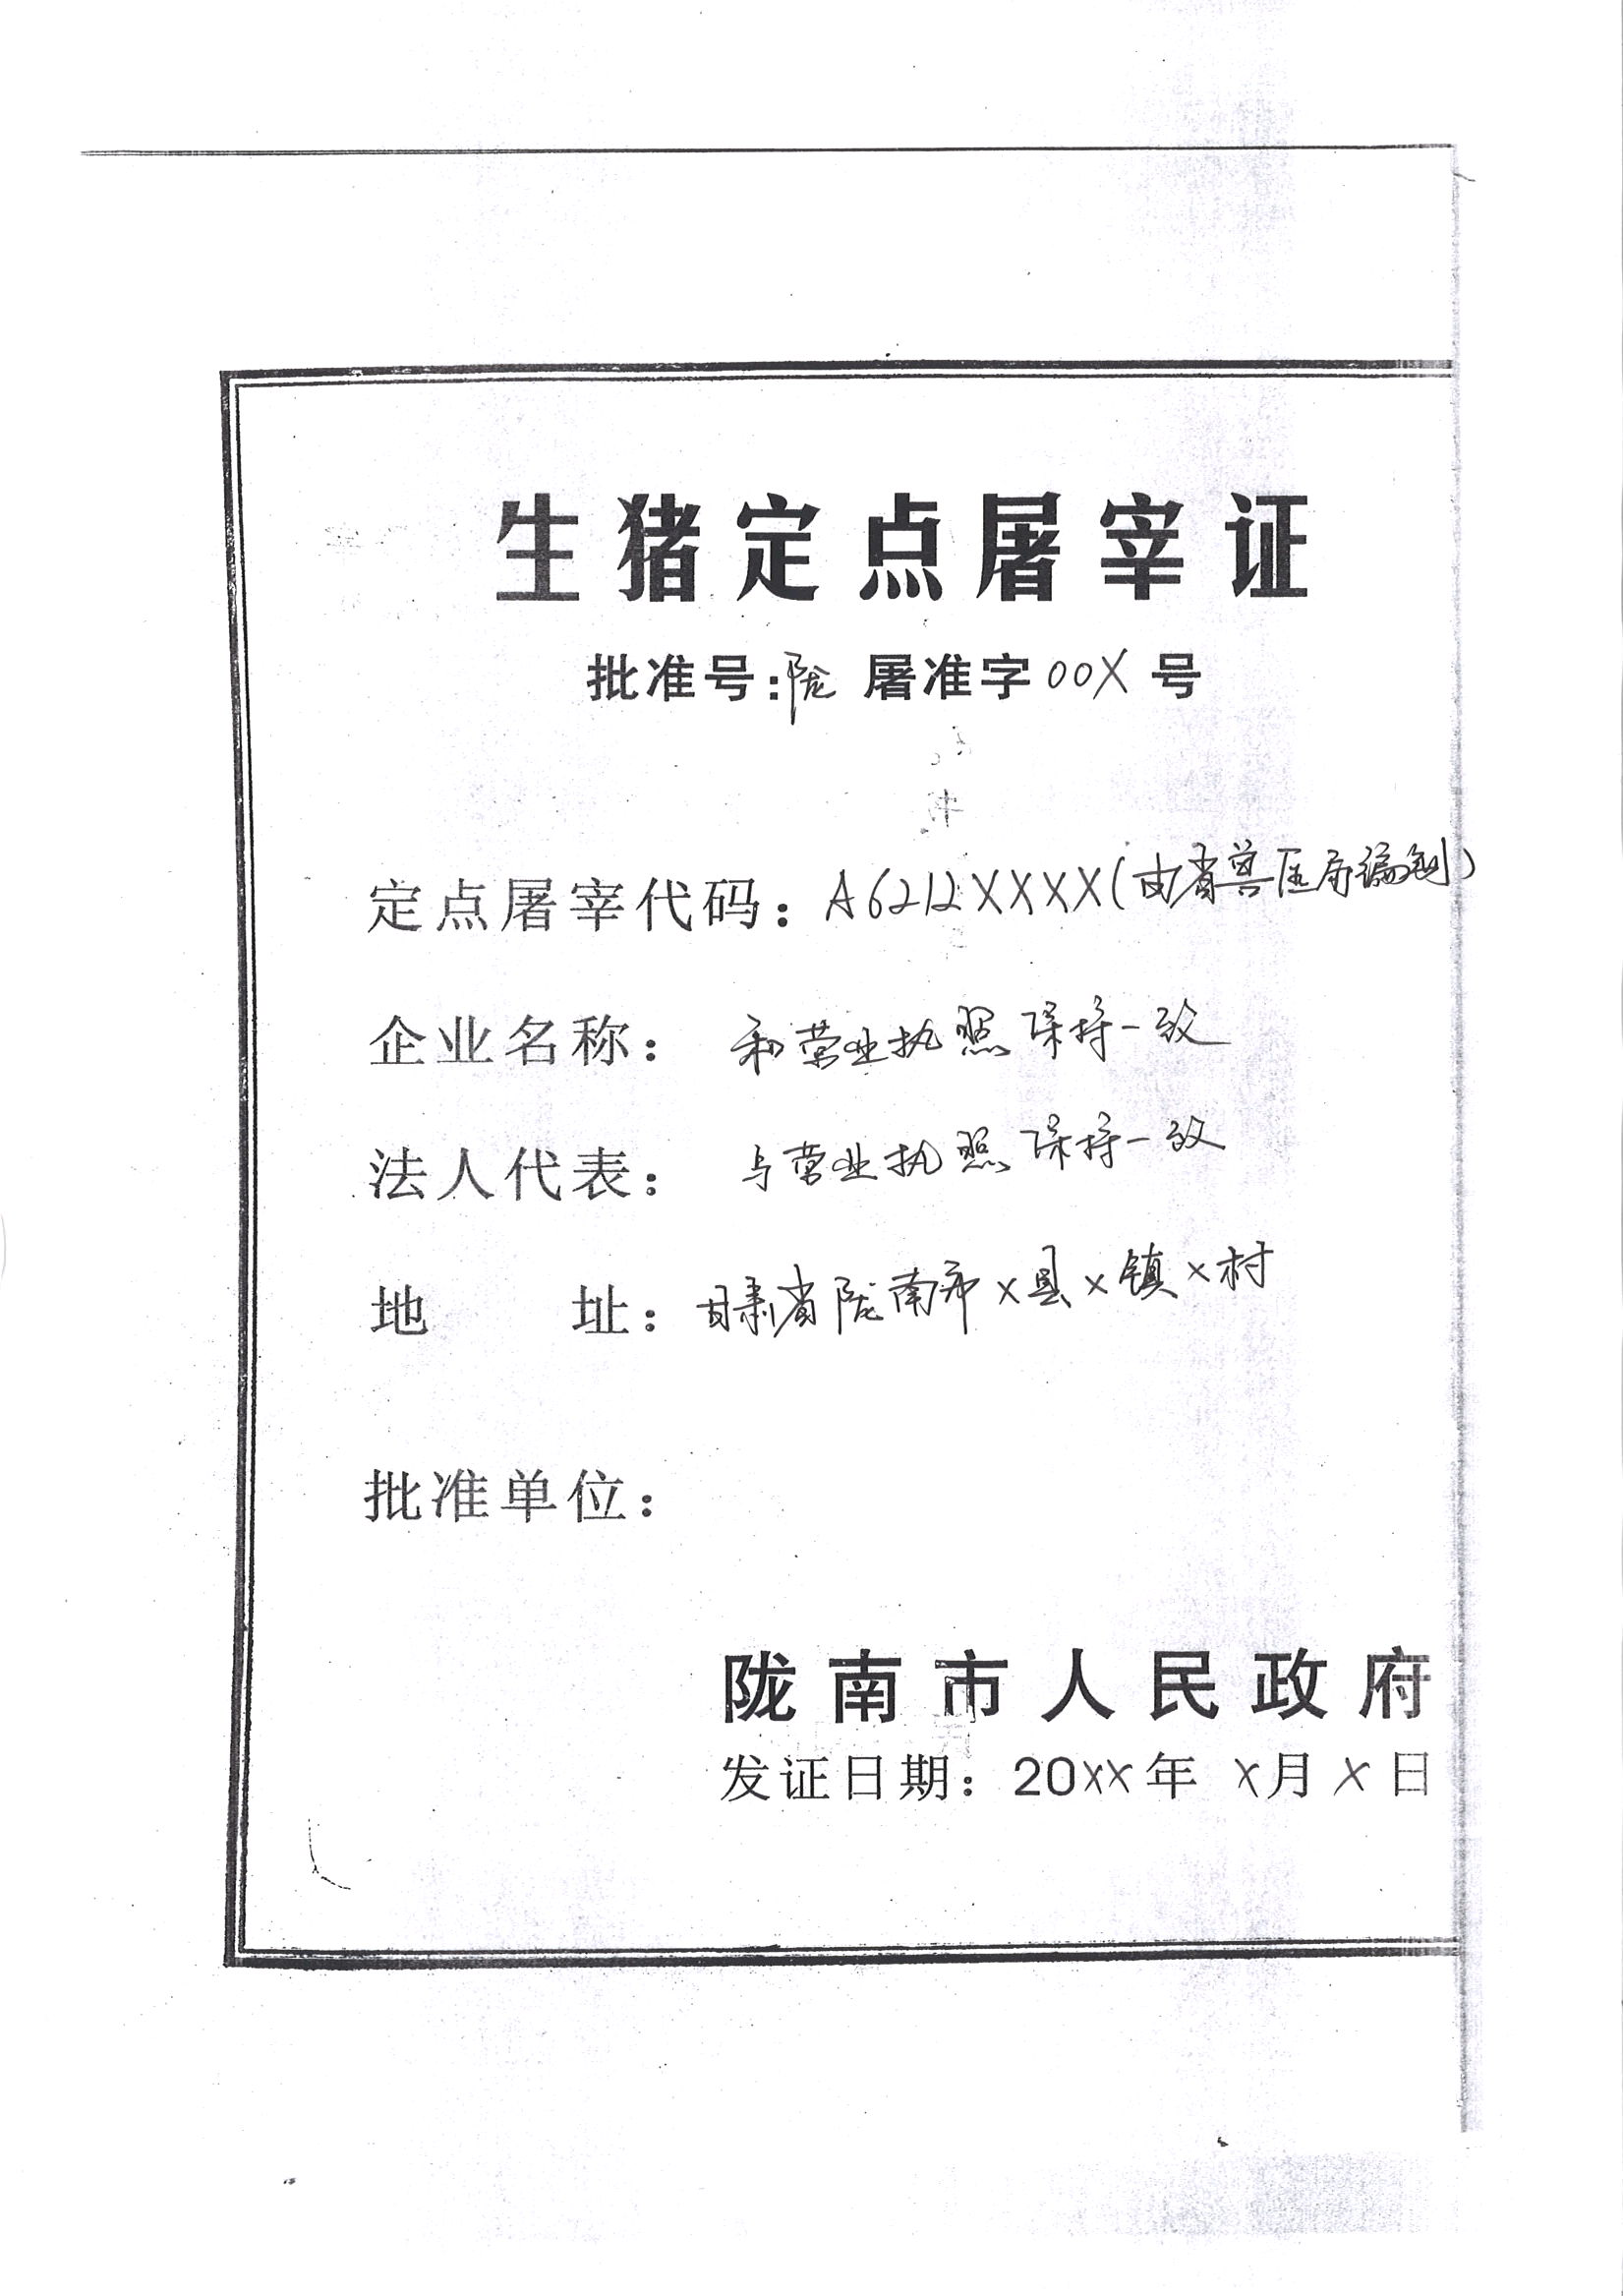 生猪定点屠宰证
批准号:陇 屠准字 00X 号
定点屠宰代码：A6212XXXX(由省兽医局编制)
企业名称：和营业执照保持一致
法人代表：与营业执照保持一致
地 址：甘肃省陇南市x县x镇x村
批准单位：
陇南市人民政府
发证日期：20xx年 x月x日